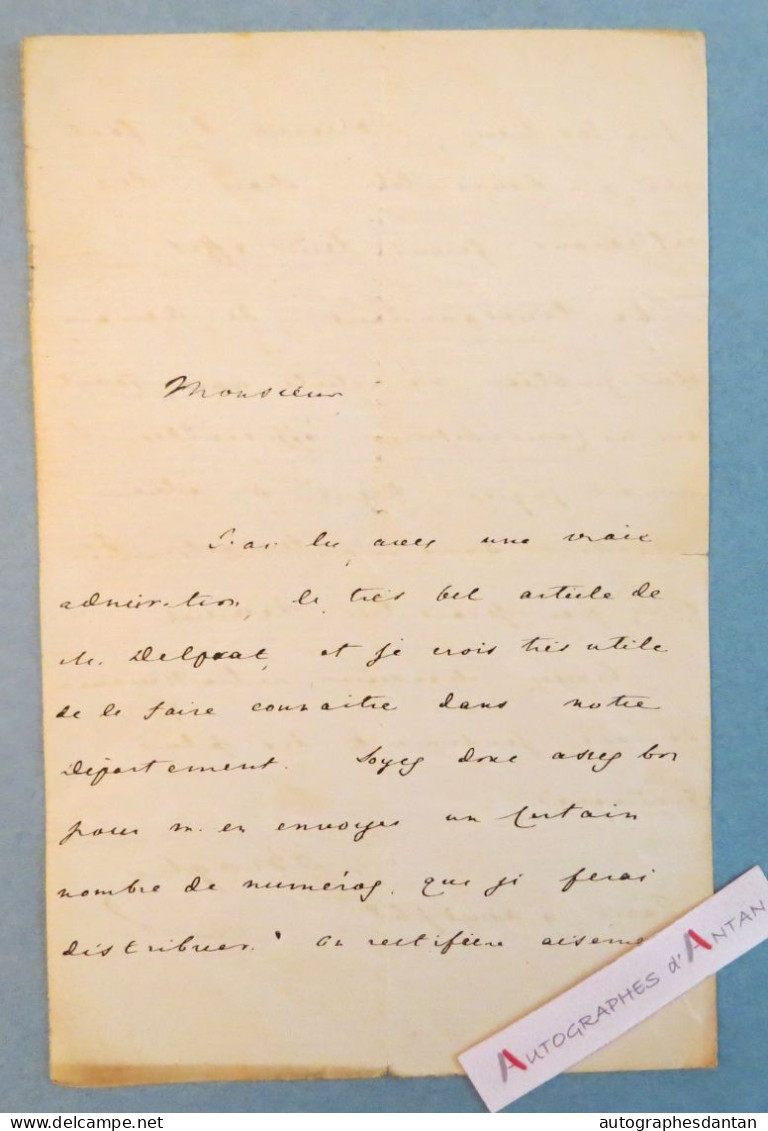 Monsieur
J'ai lu avec une vraie
admiration, le très bel article de
M. Delprat, et je crois très utile
de le faire connaitre dans notre
Département. Soyez donc assez bon
pour m'en envoyer un certain
nombre de numéros, que je ferai
distribuer. On rectifiera aiséme
AUTOGRAPHES d'ANTAN
delcampe.net
autographesdantan